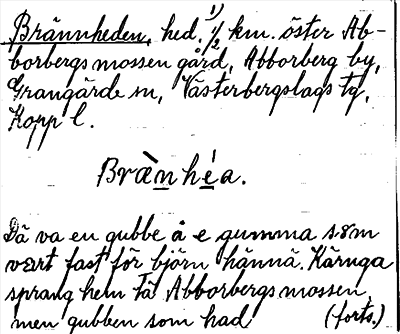 Brännheden, hed. ½ km. öster Ab-
borbergsmossen gård, Abborberg by,
Grangärde sn, Västerbergslags tg,
Kopp l.
Bræ̀nhéa.
Dä va en gubbe å e gumma søm
vart fast för björn hännä. Käruga
sprang hem täl Abborbergsmossen,
men gubben som had (forts.)